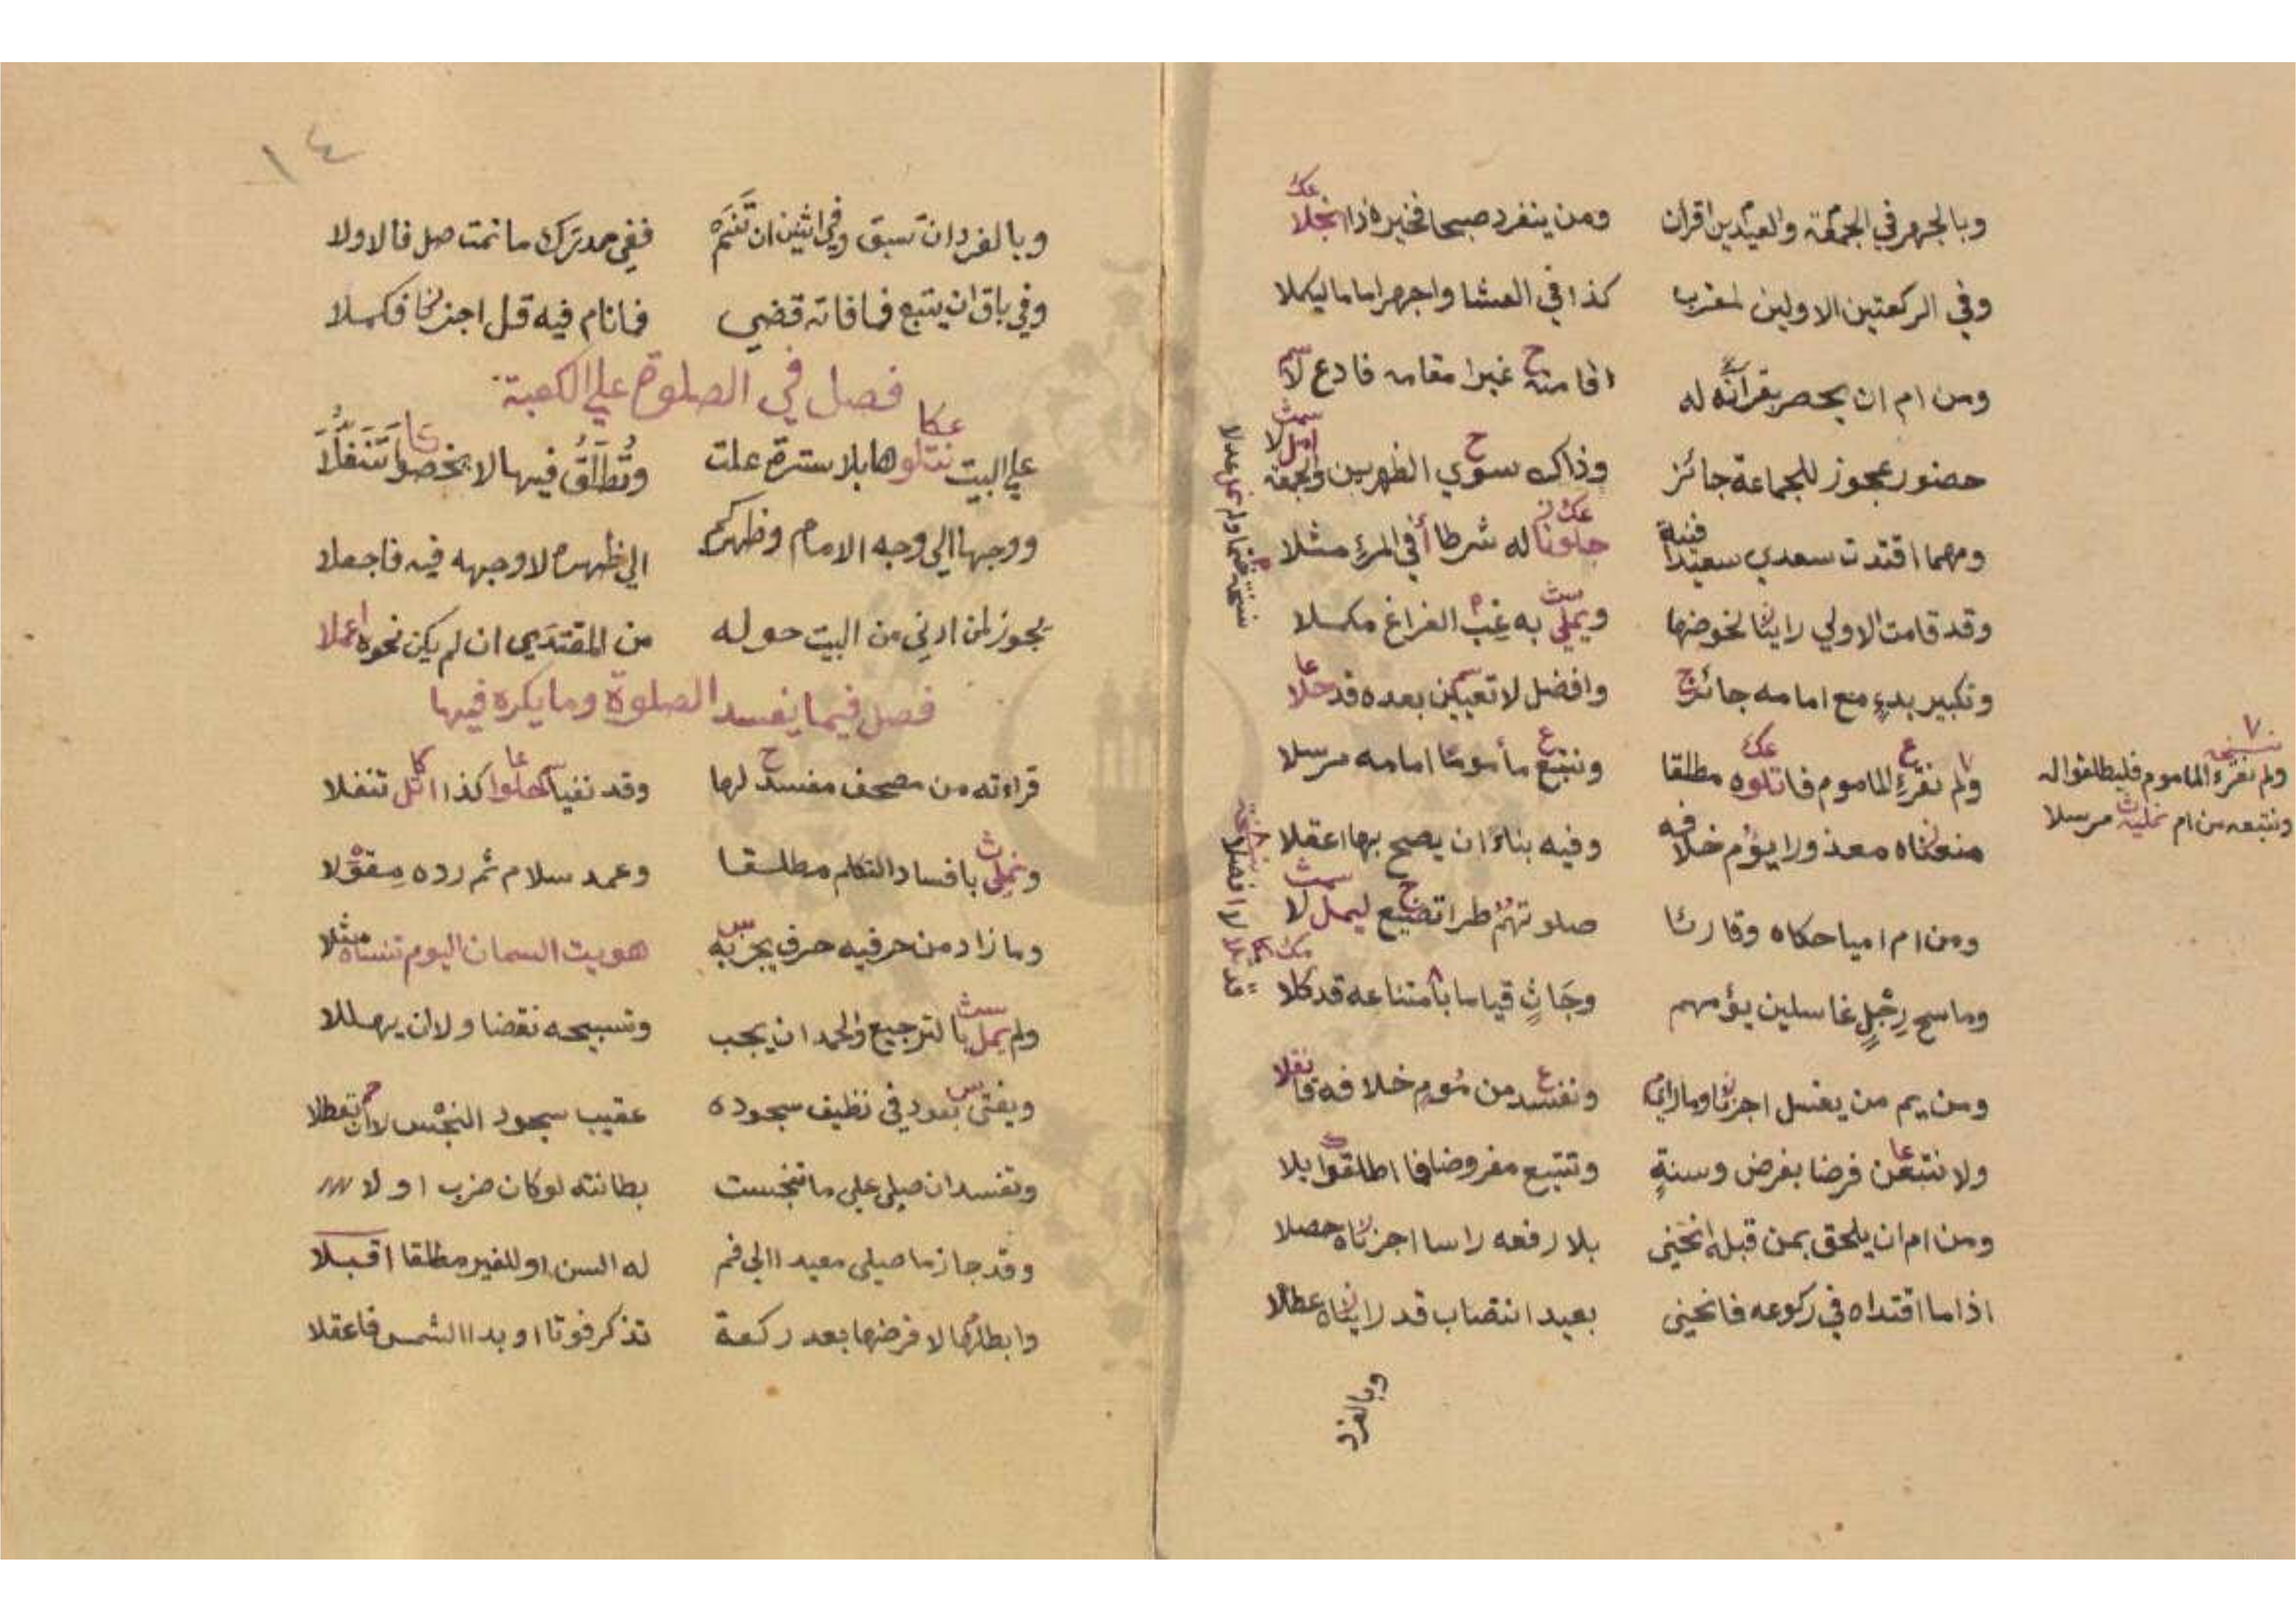 وبالجهر في الجمعة والعيدين اقرأن ومن ينفرد صبحا فخيره ذا انجلا
وفي الركعتين الاولين لمغرب كذا في العشا واجهر اماما ليكملا
ومن ام ان يحصر بقرآنه له اقامته غيرا مقامه فادع لا
حضور عجوز للجماعة جائز وذاك سوي الظهرين والجمعة امل لا
ومهما اقتدت سعدي سعيدا فنية جلونا له شرطا في المرء مثلا
وقد قامت الاولي راينا لخوضها ويملي به غب الفراغ مكملا
وتكبير بدء مع امامه جائز وافضل لا تعيين بعده قد حلا
ولم نقرئ الماموم فاتلوه مطلقا ونتبع مأموما امامه مرسلا
منعناه معذورا يؤم خلافه وفيه بناء ان يصح بها اعقلا
ومن ام اميا حكاه وقارئا صلوتهم طرا تضيع ليمل لا
وماسح رجل غاسلين يؤمهم وجاث قياسا بامتناعه قد كلا
ومن يم من يغسل اجزنا وما راي ونفسد من موم خلافه فانقلا
ولا نتبعن فرضا بفرض وسنة وتتبع مفروضا فما اطلقوا بلا
ومن ام ان يلحق بمن قبله انحني بلا رفعه راسا اجزناه حصلا
اذا ما اقتداه في ركوعه فانحني بعيد انتصاب قد رايناه عطلا
وبالفرد
نسخة
ولم نقرئ الماموم فليطلقوا له
ونتبعه من ام مرسلا
١٤
وبالفرد ان تسبق وفي اثنين ان تنم ففي حمد ترك ما نمت صل فالاولا
وفي باق ان يتبع فما فاته قضي فانام فيه قل اجزنا فكملا
فصل في الصلوة علي الكعبة
علي البيت نتلوها بلا سترة علت وتطلق فيها لا يخصوا تنفلا
ووجها الي وجه الامام وظهركم الي ظهره لا وجهه فيه فاجعلا
يجوز لمن ادني من البيت حوله من المقتدي ان لم يكن نحوه اعملا
فصل فيما يفسد الصلوة وما يكره فيها
قراءته من مصحف مفسد لها وقد نفيا كحلوا كذا اتل تنفلا
ونملي بافساد التكلم مطلقا وعمد سلام ثم رده مقولا
وما زاد من حرفيه حرف يجز به هويت السمان اليوم تنساه مثلا
ولم يمل بالترجيع والحمد ان يجب وتسبيحه نقضا ولا ان يهللا
ويفتي بعود في نظيف سجوده عقيب سجود النجس لا ان تعطلا
وتفسد ان صلي علي ما تنجست بطانته لو كان ضرب او لا
وقد جاز ما صلي معيدا الي فم له السن او للغير مطلقا اقبلا
وابطلها لا فرضها بعد ركعة تذكر فوتا او بدا الشمس فاعقلا